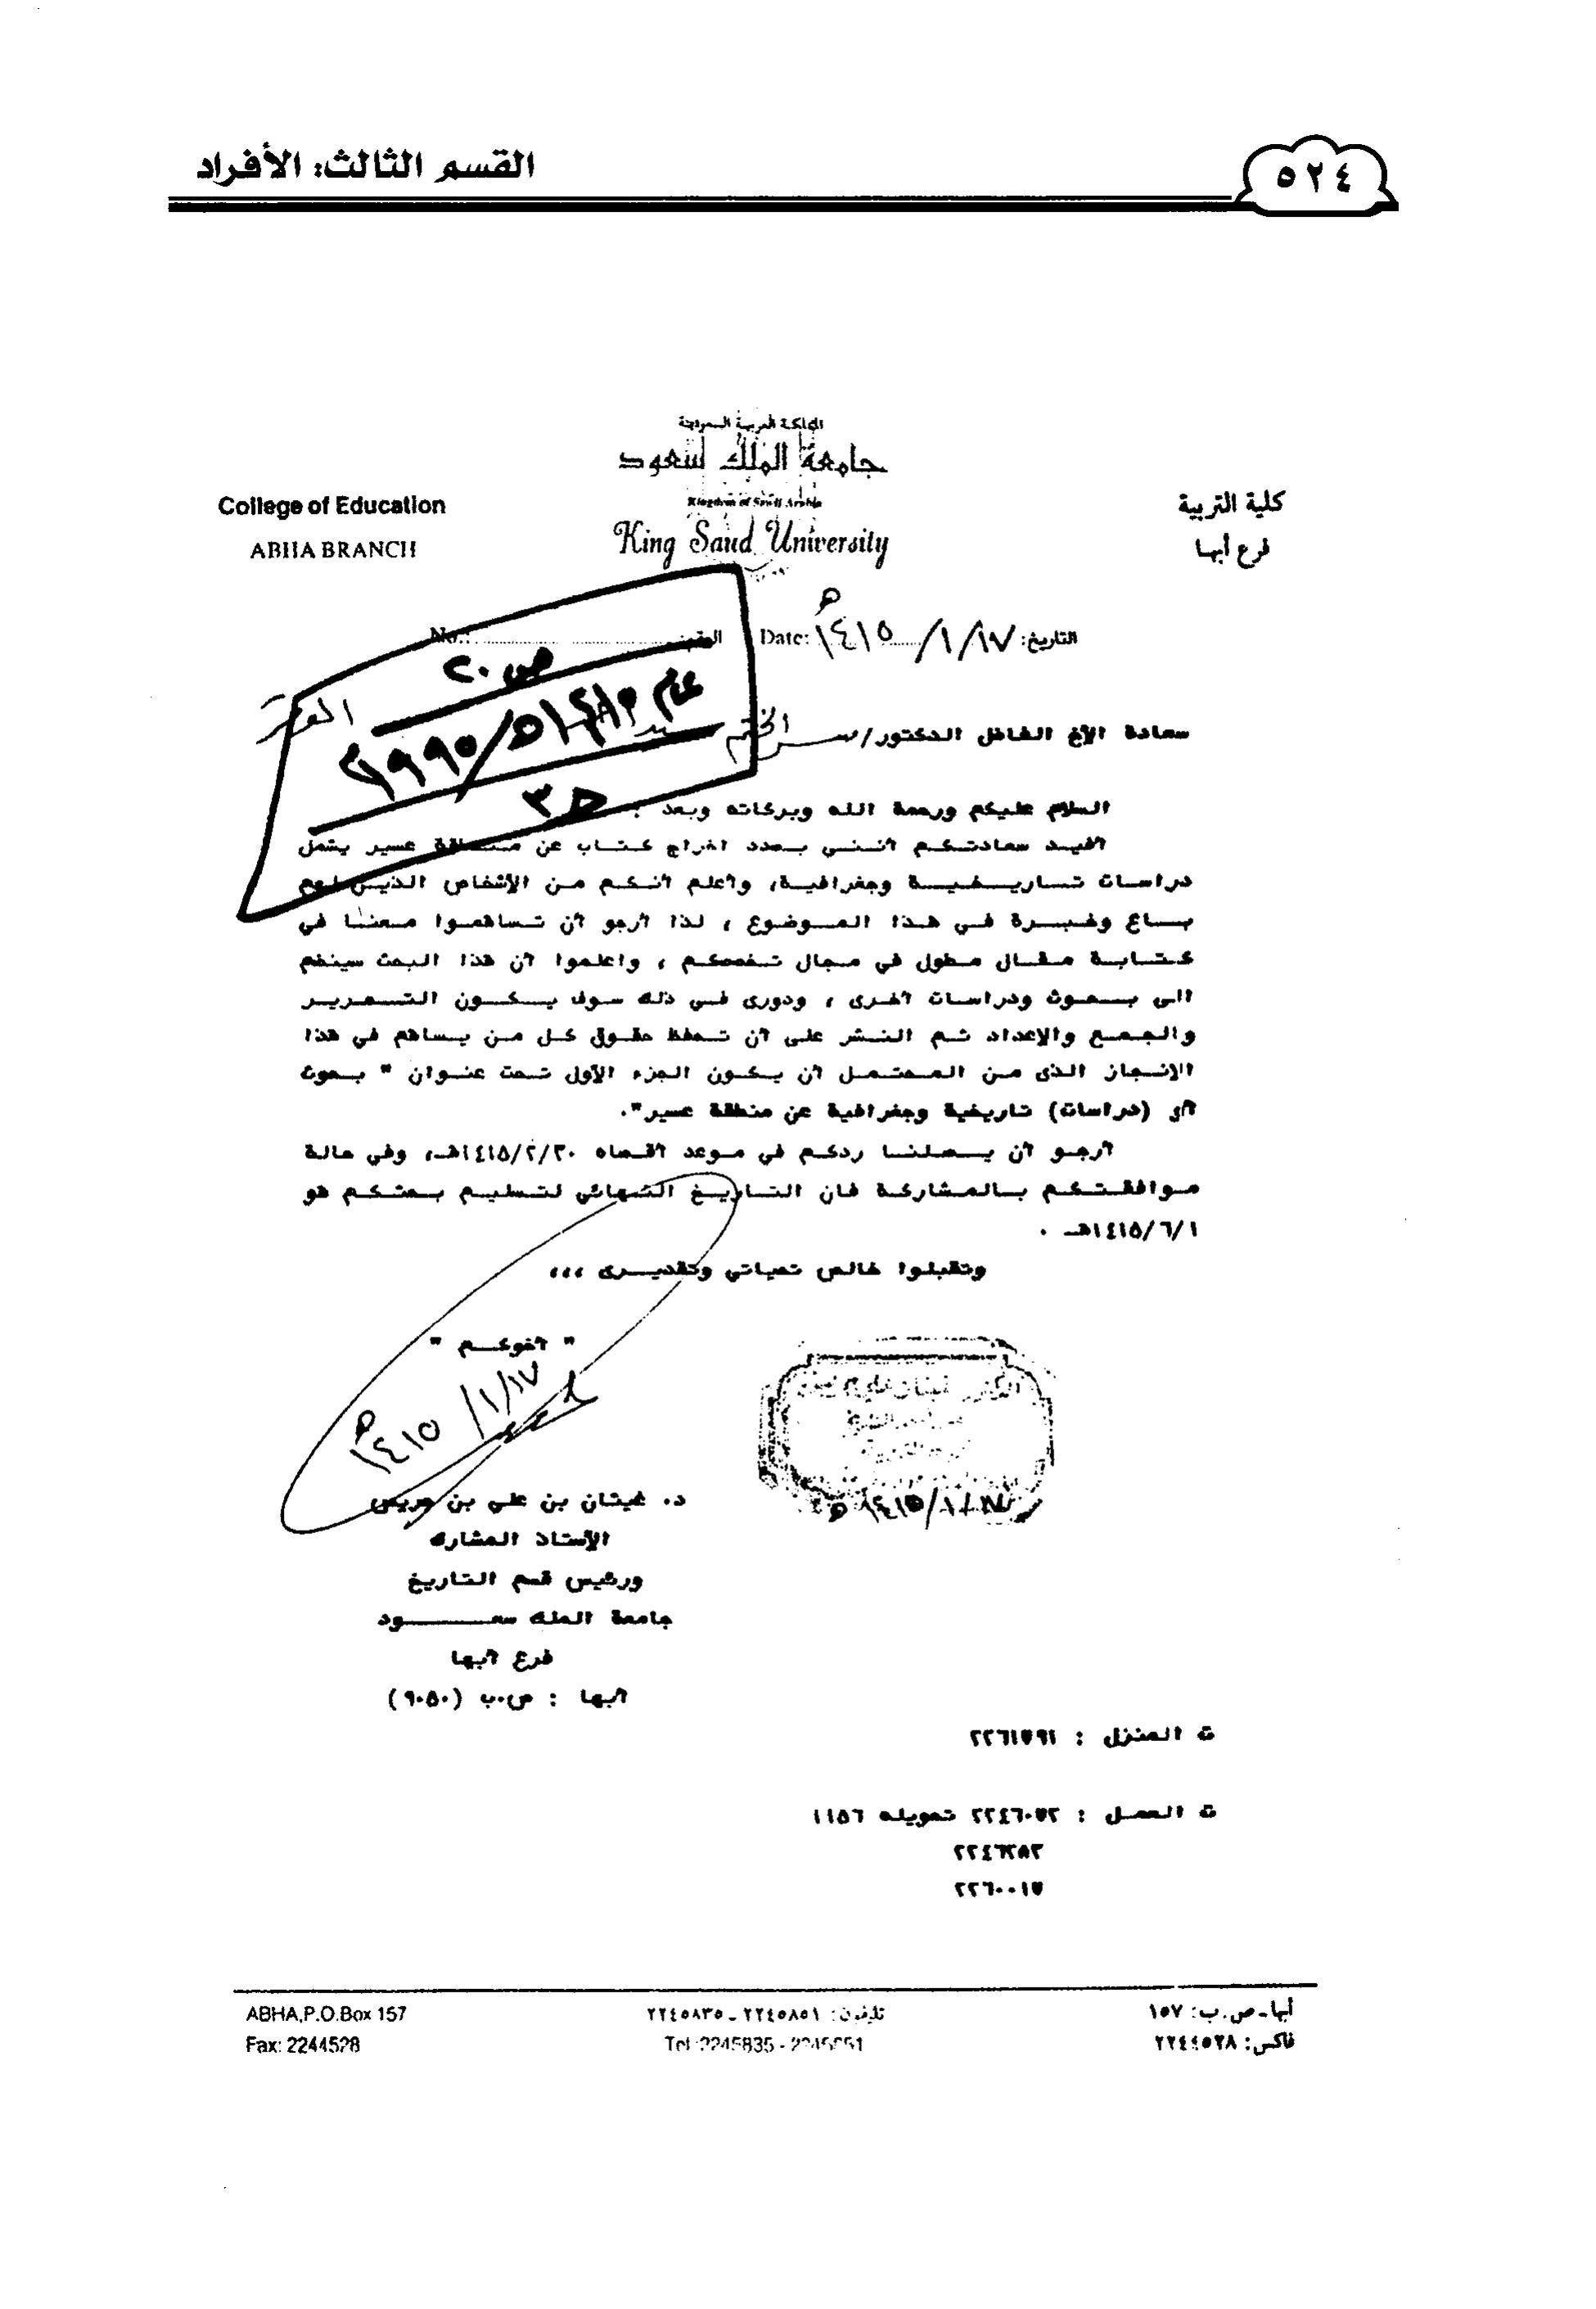 ٥٢٤
القسم الثالث: الأفراد
المملكة العربية السعودية
جامعة الملك سعود
Kingdom of Saudi Arabia
King Saud University
كلية التربية
فرع أبها
College of Education
ABHA BRANCH
التاريخ: ١٤١٥/١/١٧هـ Date:
الرقم No.:
ص٢٠
عام ١٤١٥هـ/١٩٩٥م
حـ ٣
سعادة الأخ الفاضل الدكتور/ سر الختم
السلام عليكم ورحمة الله وبركاته وبعد :
أفيد سعادتكم أنني بصدد اخراج كتاب عن منطقة عسير يشمل
دراسات تاريخية وجغرافية، وأعلم أنكم من الأشخاص الذين لهم
باع وخبرة في هذا الموضوع ، لذا أرجو أن تساهموا معنا في
كتابة مقال مطول في مجال تخصصكم ، واعلموا أن هذا البحث سينضم
الى بحوث ودراسات أخرى ، ودورى في ذلك سوف يكون التحرير
والجمع والإعداد ثم النشر على أن تحفظ حقوق كل من يساهم في هذا
الإنجاز الذى من المحتمل أن يكون الجزء الأول تحت عنوان " بحوث
أو (دراسات) تاريخية وجغرافية عن منطقة عسير".
أرجو أن يصلنا ردكم في موعد أقصاه ١٤١٥/٢/٣٠هـ، وفي حالة
موافقتكم بالمشاركة فان التاريخ النهائي لتسليم بحثكم هو
١٤١٥/٦/١هـ .
وتقبلوا خالص تحياتي وتقديرى ،،،
" أخوكم "
١٤١٥/١/١٧هـ
١٤١٥/١/١٧هـ
د. غيثان بن علي بن جريس
الأستاذ المشارك
ورئيس قسم التاريخ
جامعة الملك سعود
فرع أبها
أبها : ص.ب (٩٠٥٠)
ت المنزل : ٢٢٦١٧٩١
ت العمل : ٢٢٤٦٠٧٣ تحويلة ١١٥٦
٢٢٤٦٢٨٣
٢٢٦٠٠١٧
أبها ـ ص.ب: ١٥٧
فاكس: ٢٢٤٤٥٢٨
تليفون: ٢٢٤٥٨٥١ ـ ٢٢٤٥٨٣٥
Tel :2245835 - 2245851
ABHA,P.O.Box 157
Fax: 2244528